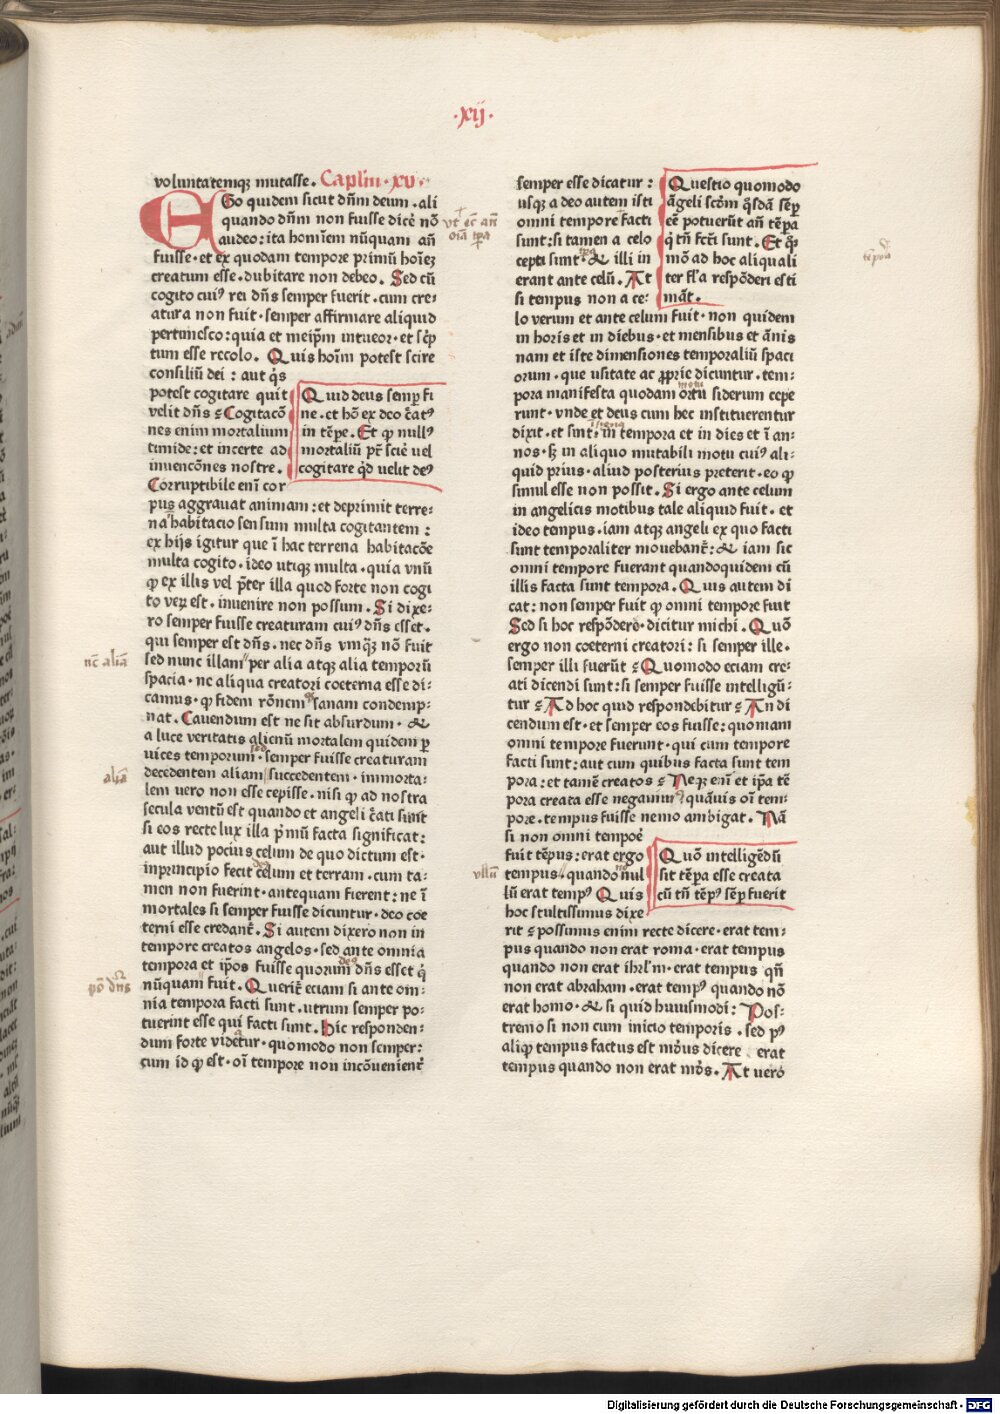 ·xij·
voluntatemq; mutasse. Caplm·xv·
EGo quidem sicut dñm deum·ali
quando dñm non fuisse dicē nō
audeo: ita hominem nūquam añ
fuisse·et ex quodam tempore primū hoiez
creatum esse·dubitare non debeo. Sed cū
cogito cui⁹ rei dñs semper fuerit·cum cre-
atura non fuit·semper affirmare aliquid
pertimesco: quia et meip̄m intueor·et scp̄
tum esse recolo. Quis hoīm potest scire
consiliū dei: aut q̄s
potest cogitare quit
velit dñs ? Cogitacō
nes enim mortalium
timide: et incerte ad
invencōnes nostre.
Corruptibile enī cor
Quid deus semp̄ fi
ne·et hō ex deo c̄at⁹
in tēpe. Et q̄ null⁹
mortaliū pr̄ scīe vel
cogitare q̄d velit de⁹
pus aggravat animam: et deprimit terre-
na habitacio sensum multa cogitantem:
ex hijs igitur que ī hac terrena habitacōe
multa cogito·ideo utiq; multa·quia vnū
q̄ ex illis vel p̄ter illa quod forte non cogi
to verꝫ est·invenire non possum. Si dixe-
ro semper fuisse creaturam cui⁹ dñs esset·
qui semper est dñs·nec dñs vmq̄; nō fuit
sed nunc illam per alia atq; alia temporū
spacia·nc aliqua creatori coeterna esse di-
camus·q̄ fidem rōnem sanam condemp-
nat. Cavendum est ne sit absurdum·&
a luce veritatis alienū mortalem quidem p̄
vices temporum·semper fuisse creaturam
decedentem aliam succedentem·immorta-
lem vero non esse cepisse·nisi q̄ ad nostra
secula ventū est quando et angeli c̄ati sunt
si eos recte lux illa p̄mū facta significat:
aut illud pocius celum de quo dictum est·
inprincipio fecit celum et terram·cum ta-
men non fuerint·antequam fierent: ne ī
mortales si semper fuisse dicuntur·deo coe
terni esse credant̄. Si autem dixero non in
tempore creatos angelos·sed ante omnia
tempora et ip̄os fuisse quorum dñs esset q̄
nūquam fuit. Querit̄ eciam si ante om-
nia tempora facti sunt·utrum semper po-
tuerint esse qui facti sunt. Hic responden-
dum forte videtur·quomodo non semper:
cum id q̄ est·oī tempore non incōvenient̄
vt̄ ec̄ añ
oīa tp̄a
nc̄ aliā
aliā
po dñs
semper esse dicatur:
usq; a deo autem isti
omni tempore facti
sunt: si tamen a celo
cepti sunt·& illi in
erant ante celū. At
si tempus non a ce-
Questio quomodo
āgeli scd̄m q̄sdā sēp̄
eē potuerūt añ tēp̄a
q̄ tñ fct̄i sunt. Et q̄o
mō ad hoc aliquali
ter fl'a respōderi esti
māt.
lo verum et ante celum fuit·non quidem
in horis et in diebus·et mensibus et ānis
nam et iste dimensiones temporaliū spaci
orum·que usitate ac ꝓprie dicuntur·tem-
pora manifesta quodam ortu siderum cepe
runt·vnde et deus cum hec institueretur
dixit·et sint in tempora et in dies et ī an-
nos·sꝫ in aliquo mutabili motu cui⁹ ali-
quid prius·aliud posterius preterit·eo q̄
simul esse non possit. Si ergo ante celum
in angelicis motibus tale aliquid fuit·et
ideo tempus·iam atq; angeli ex quo facti
sunt temporaliter movebant̄: & iam sic
omni tempore fuerant quandoquidem cū
illis facta sunt tempora. Quis autem di
cat: non semper fuit q̄ omni tempore fuit
Sed si hoc respōdero·dicitur michi. Quō
ergo non coeterni creatori: si semper ille·
semper illi fuerūt ? Quomodo eciam cre-
ati dicendi sunt: si semper fuisse intelligū-
tur ? Ad hoc quid respondebitur ? An di
cendum est·et semper eos fuisse: quoniam
omni tempore fuerunt·qui cum tempore
facti sunt: aut cum quibus facta sunt tem
pora: et tamē creatos ? Neq; eñ et ip̄a tē
pora creata esse negamus? quāvis oī tem-
pore·tempus fuisse nemo ambigat. Nā
si non omni tempoē
fuit tēpus: erat ergo
tempus quando nul
lū erat temp⁹ Quis
hoc stultissimus dixe
Quō intelligēdū
sit tēp̄a esse creata
cū tñ tēp⁹ sēp̄ fuerit
rit ? possumus enim recte dicere·erat tem-
pus quando non erat roma·erat tempus
quando non erat ihrl'm·erat tempus qñ
non erat abraham·erat temp⁹ quando nō
erat homo·& si quid huiusmodi: Pos-
tremo si non cum inicio temporis·sed p⁹
aliq̄ tempus factus est mōus dicere·erat
tempus quando non erat mōs. At vero
vllū
Digitalisierung gefördert durch die Deutsche Forschungsgemeinschaft - DFG